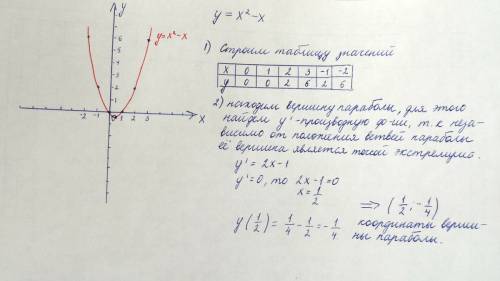 y = x² - x
1) Строим таблицу значений
x 0 1 2 3 -1 -2
y 0 0 2 6 2 6
2) находим вершину параболы, для этого
найдём y' - производную ф-ии, т.к неза-
висимо от положения ветвей параболы
её вершина является точкой экстремума.
y' = 2x - 1
y' = 0, то 2x - 1 = 0
x = 1/2
y(1/2) = 1/4 - 1/2 = - 1/4
⇒ (1/2, - 1/4)
координаты верши-
ны параболы.
y
y = x² - x
6
5
4
3
2
1
-2 -1 0 1 2 3 x